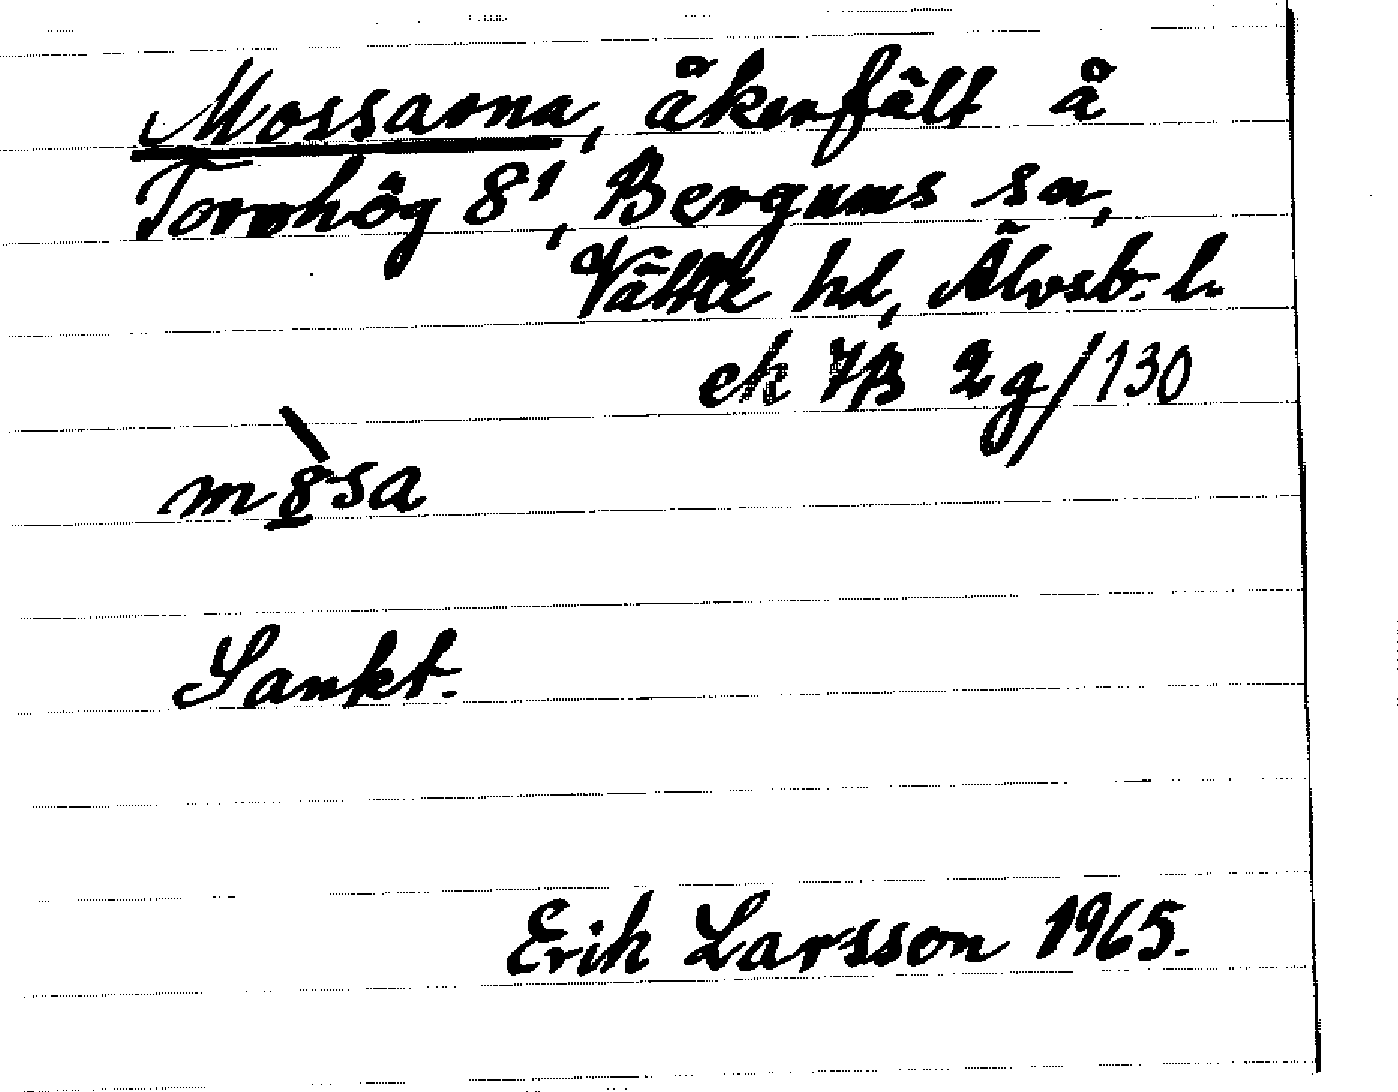 Mossarna, åkerfält å
Tornhög 8¹, Bergums sn,
Vättle hd, Älvsb. l.
ek 7B 2g/130
m8̀sa
Sankt.
Erik Larsson 1965.